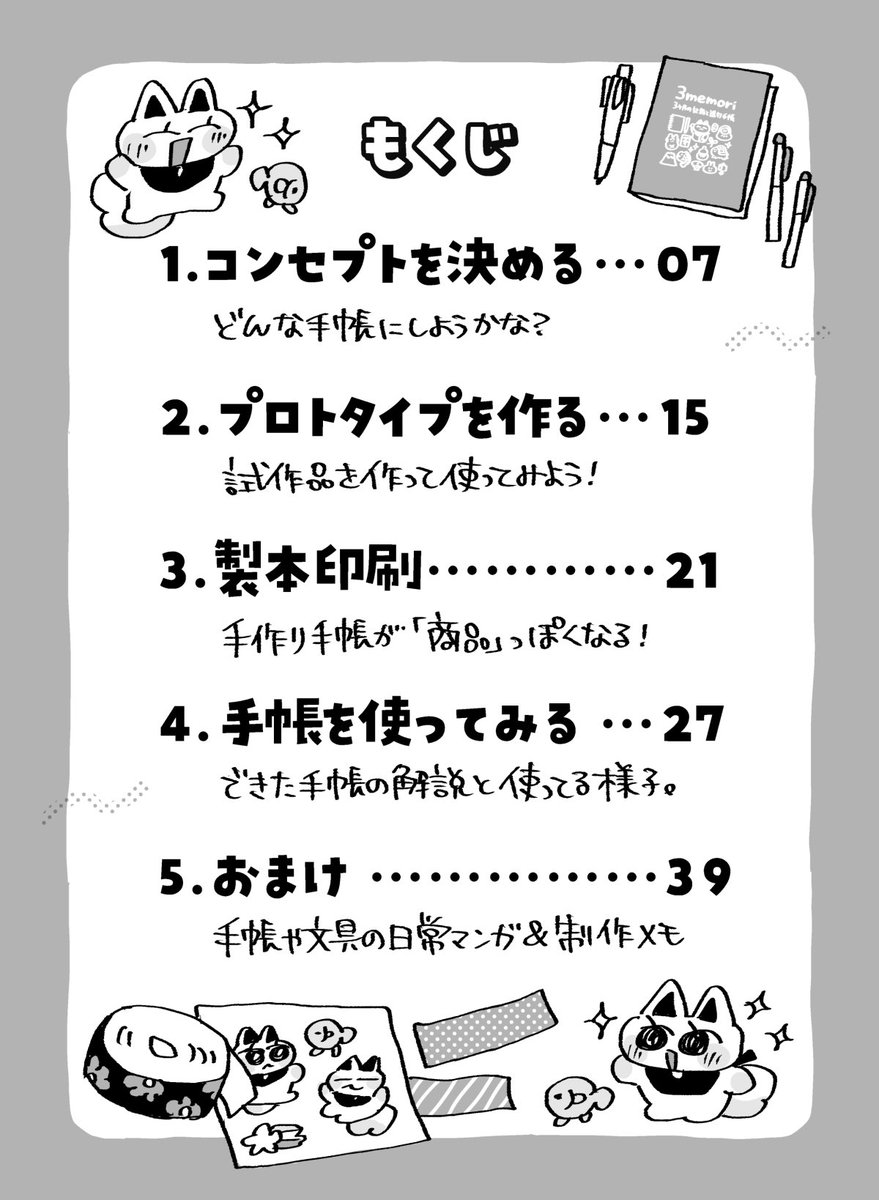 もくじ
3memori
1.コンセプトを決める…07
どんな手帳にしようかな?
2.プロトタイプを作る…15
試作品を作って使ってみよう!
3.製本印刷…………21
手作り手帳が「商品」っぽくなる!
4.手帳を使ってみる…27
できた手帳の解説と使ってる様子。
5.おまけ……………39
手帳や文具の日常マンガ&制作メモ